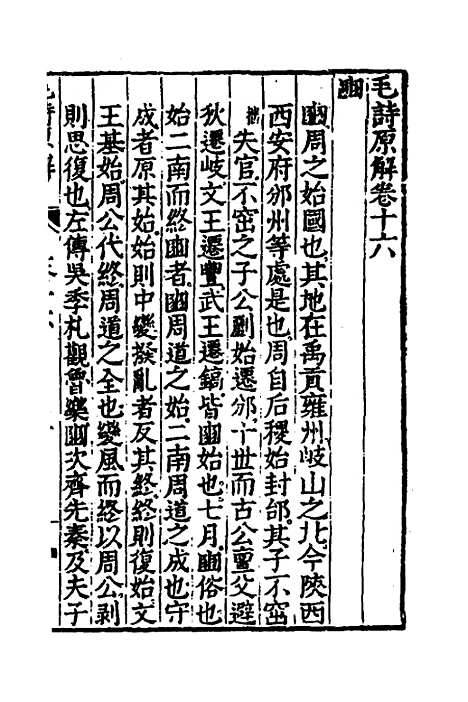 毛詩原解卷十六
豳
豳周之始國也其地在禹貢雍州岐山之北今陝西
西安府邠州等處是也周自后稷始封邰其子不窋
失官不窋之子公劉始遷邠十世而古公亶父避
狄遷岐文王遷豐武王遷鎬皆豳始也七月豳俗也
始二南而終豳者豳周道之始二南周道之成也守
成者原其始始則中變撥亂者反其終終則復始文
王基始周公代終周道之全也變風而終以周公剥
則思復也左傳吳季札觀魯樂豳次齊先秦及夫子